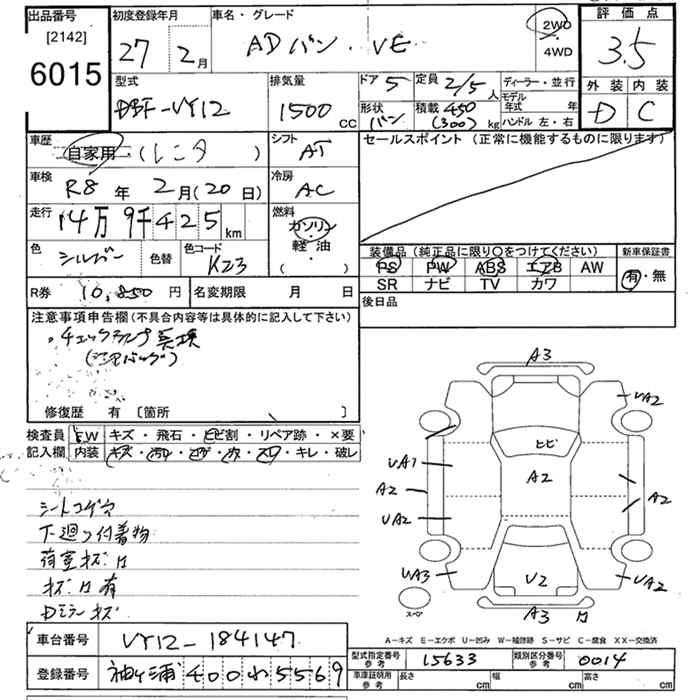 出品番号 初度登録年月 車名・グレード 評価点
[2142]
6015
27 2月 ADバン・VE 2WD 4WD 3.5
型式 排気量 ドア 5 定員 2/5人 ディーラー・並行 外装 内装
DBF-VY12 1500CC 形状 バン 積載 450 (300)kg モデル年式 年 ハンドル 左・右 D C
車歴 自家用 (レンタ) シフト AT セールスポイント(正常に機能するものに限ります)
車検 R8年 2月(20日) 冷房 AC
走行 14万9千425km 燃料 ガソリン 軽油・( )
色 シルバー 色替 色コード K23
装備品(純正品に限り○をつけてください) 新車保証書
PS PW ABS エアB AW 有・無
SR ナビ TV カワ
R券 10,850円 名変期限 月 日 後日品
注意事項申告欄(不具合内容等は具体的に記入して下さい)
・チェックランプ
(エアバッグ)
修復歴 有 〔箇所 〕
検査員記入欄 FW キズ・飛石・ヒビ割・リペア跡・×要
内装 キズ・汚レ・コゲ・穴・スレ・キレ・破レ
シートコゲ穴
下廻り付着物
荷室キズ凹
キズ凹有
Dミラーキズ
A3
UA2 UA2
ヒビ
UA1
A2 A2 A2
UA2
UA3 U2 UA2
スペア A3 凹
A-キズ E-エクボ U-凹み W-補修跡 S-サビ C-腐食 XX-交換済
車台番号 VY12-184147
登録番号 袖ヶ浦 400 わ 5569
型式指定番号 参考 15633 類別区分番号 参考 0014
車庫証明用 参考 長さ cm 幅 cm 高さ cm